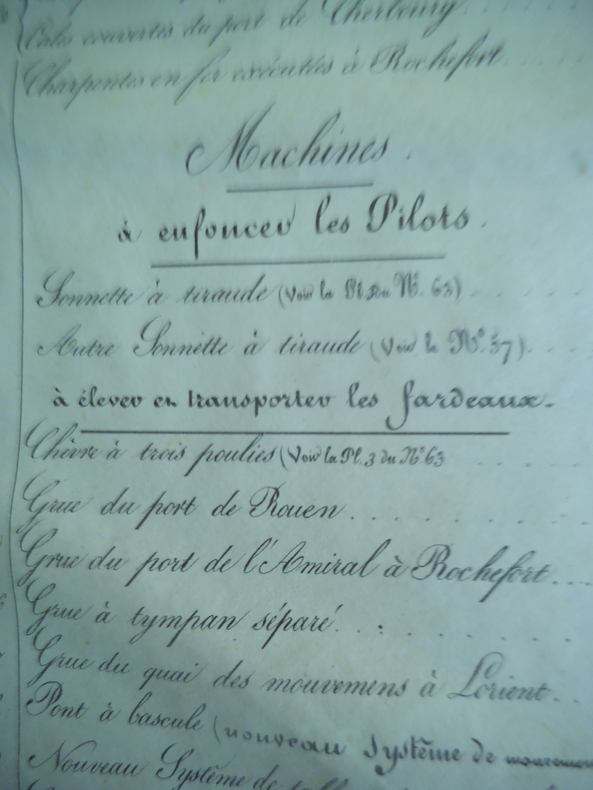 Cales couvertes du port de Cherbourg
Charpentes en fer exécutées à Rochefort
Machines
à enfoncer les Pilots.
Sonnette à tiraude (Voir la Pl. du N° 63)
Autre Sonnette à tiraude (Voir le N° 57)
à élever en transporter les fardeaux.
Chèvre à trois poulies (Voir la Pl. 3 du N° 63
Grue du port de Rouen
Grue du port de l'Amiral à Rochefort
Grue à tympan séparé
Grue du quai des mouvemens à Lorient
Pont à bascule (nouveau Système de mouvemen
Nouveau Système de